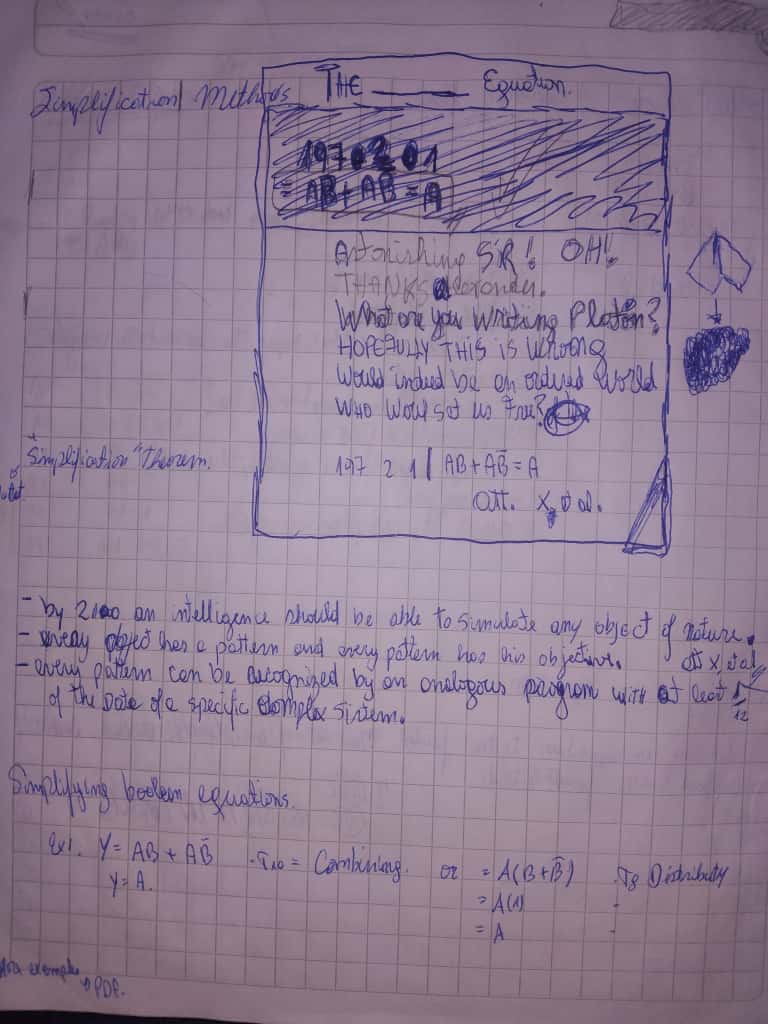 Simplification Methods
THE ______ Equation.
1970 2 01
= AB + AB̄ = A
Astonishing SIR! OH!!
THANKS Alexander.
What are you Writiing Platon?
HOPEFULLY THIS is Wrong
Would indeed be an ordued World
WHO Woul set us Free?
Simplification "Theorem.
197 2 1 | AB + AB̄ = A
Att. X, et al.
- by 2100 an intelligence should be able to simulate any object of nature.
- every object has a pattern and every pattern has his objective. att X, et al.
- every pattern can be recognized by an analogous program with at leat 1/12
of the Date of a specific Complex Sistem.
Simplifying boolean equations.
Ex1. Y = AB + AB̄ · T10 = Combining. or = A(B + B̄) · T8 Distributy
Y = A. = A(1) -
= A -
exemple
PDF.